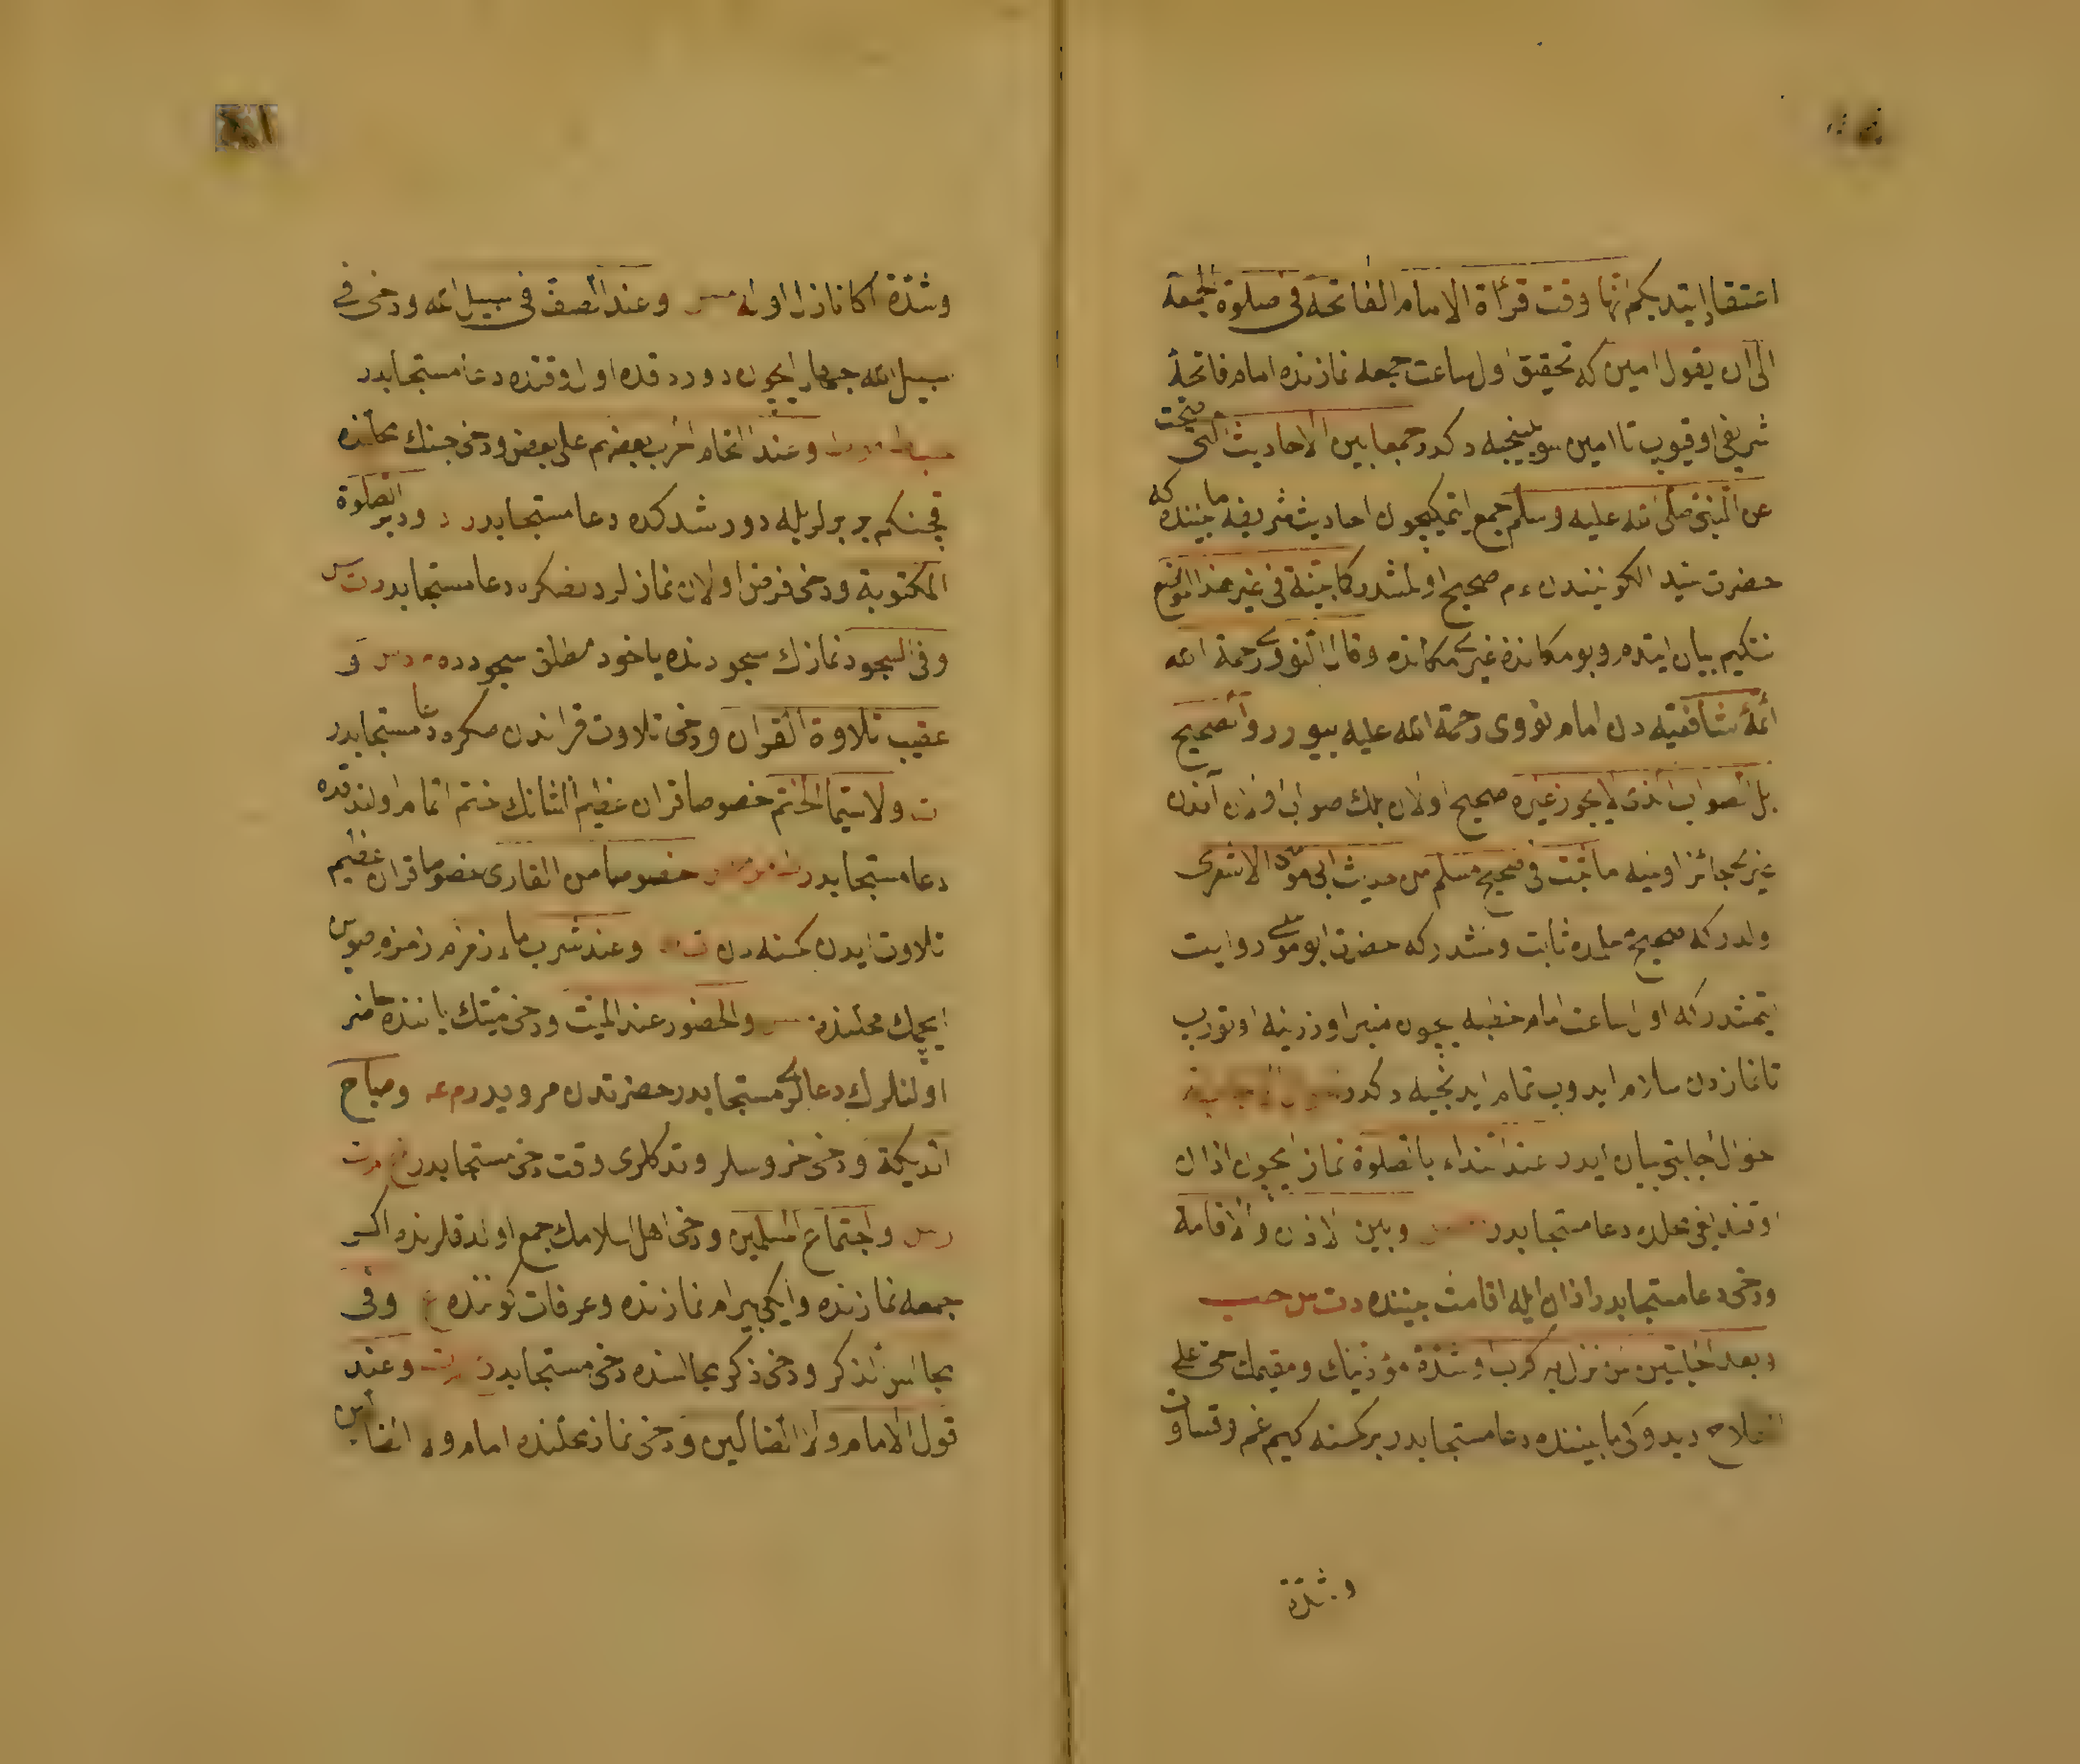 اعتقاد ايتديكم انها وقت قرأة الامام الفاتحة فى صلوة الجمعة
الى ان يقول امين كه تحقيق اول ساعت جمعه نمازنده امام فاتحۀ
شريفى اوقيوب تا امين سويلينجيه دكدر جمعا بين الاحاديث التى صحت
عن النبى صلى الله عليه وسلم جمع ايتمكيچون احاديث شريفه مابيننده كه
حضرت سيد الكونيندن ٠م صحيح اولمشدر كما بينته فى غير هذا الموضع
نتكيم بيان ايتدم بو مكانده غيرى مكانده وقال النووى رحمة الله
ائمۀ شافعيه دن امام نووى رحمة الله عليه بيورر والصحيح
بل الصواب الذى لا يجوز غيره صحيح اولان بلك صواب اولان آندن
غيرى جائز اولميه ما ثبت فى صحيح مسلم من حديث ابى موسى الاشعرى
اولدر كه صحيح مسلمده ثابت اولمشدر كه حضرت ابو موسى روايت
ايتمشدر كه اول ساعت امام خطبه يچون منبر اوزرينه اوتورب
تا نمازدن سلام ايدوب تمام ايدنجيه دكدر
احوال اجابتى بيان ايدر عند النداء بالصلوة نماز ايچون اذان
اوقنديغى محلده دعا مستجابدر وبين الاذان والاقامة
ودخى دعا مستجابدر اذان ايله اقامت بيننده د ت س حب
وبعد الحيعلتين لمن نزل به كرب او شدة مؤذنك ومقيمك حى على
الفلاح ديدوكى مابيننده دعا مستجابدر بر كسنه كيم غم وقساوت
وشدة
وشدة اكا نازل اوله وعند الصف فى سبيل الله ودخى فى
سبيل الله جهاد ايچون دوردقده اول وقتده دعا مستجابدر
وعند التحام الحرب بعضهم على بعض ودخى جنك محلنده
قچنكم بربرلريله دورشدكده دعا مستجابدر د ودبر الصلوة
المكتوبة ودخى فرض اولان نمازلردنصكره دعا مستجابدر ت س
وفى السجود نمازك سجودنده ياخود مطلق سجودده م د س و
عقيب تلاوة القرآن ودخى تلاوت قراندن صكره دعا مستجابدر
ت ولا سيما الختم خصوصا قران عظيم الشانك ختم اتمام اولندقده
دعا مستجابدر خصوصا من القارى خصوصا قران عظيم
تلاوت ايدن كسنه دن ت وعند شرب ماء زمزم زمزم صوين
ايچمك محلنده والحضور عند الميت ودخى ميتك ياننده حاضر
اولنلرك دعالرى مستجابدر حضرتدن مرويدر م عه وصياح
الديكة ودخى خروسلر اوتدكلرى وقت دخى مستجابدر خ م ت
س واجتماع المسلمين ودخى اهل اسلامك جمع اولدقلرنده اكر
جمعه نمازنده وايكى بيرام نمازنده وعرفات كوننده ع وفى
مجالس الذكر ودخى ذكر مجالسنده دخى مستجابدر وعند
قول الامام ولا الضالين ودخى نماز محلنده امام ولا الضالين